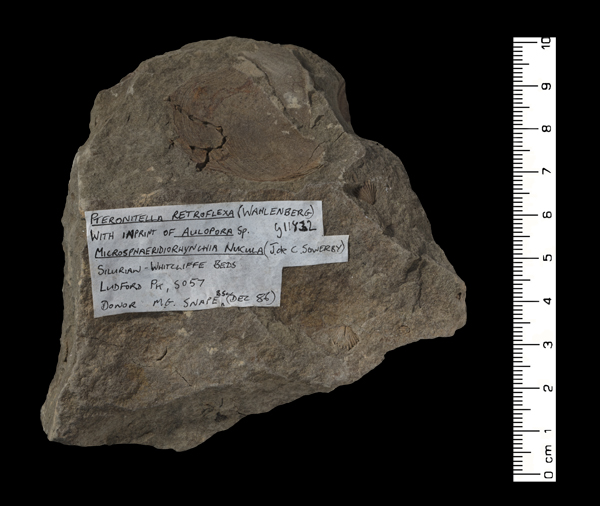 PTERONITELLA RETROFLEXA (WAHLENBERG)
WITH IMPRINT OF AULOPORA Sp.
MICROSPHAERIDIORHYNCHIA NUCULA (J de C SOWERBY)
SILURIAN-WHITCLIFFE BEDS
LUDFORD PK, SO57
DONOR MG. SNAPE (DEC 86)
10
9
8
7
6
5
4
3
2
1
0 cm